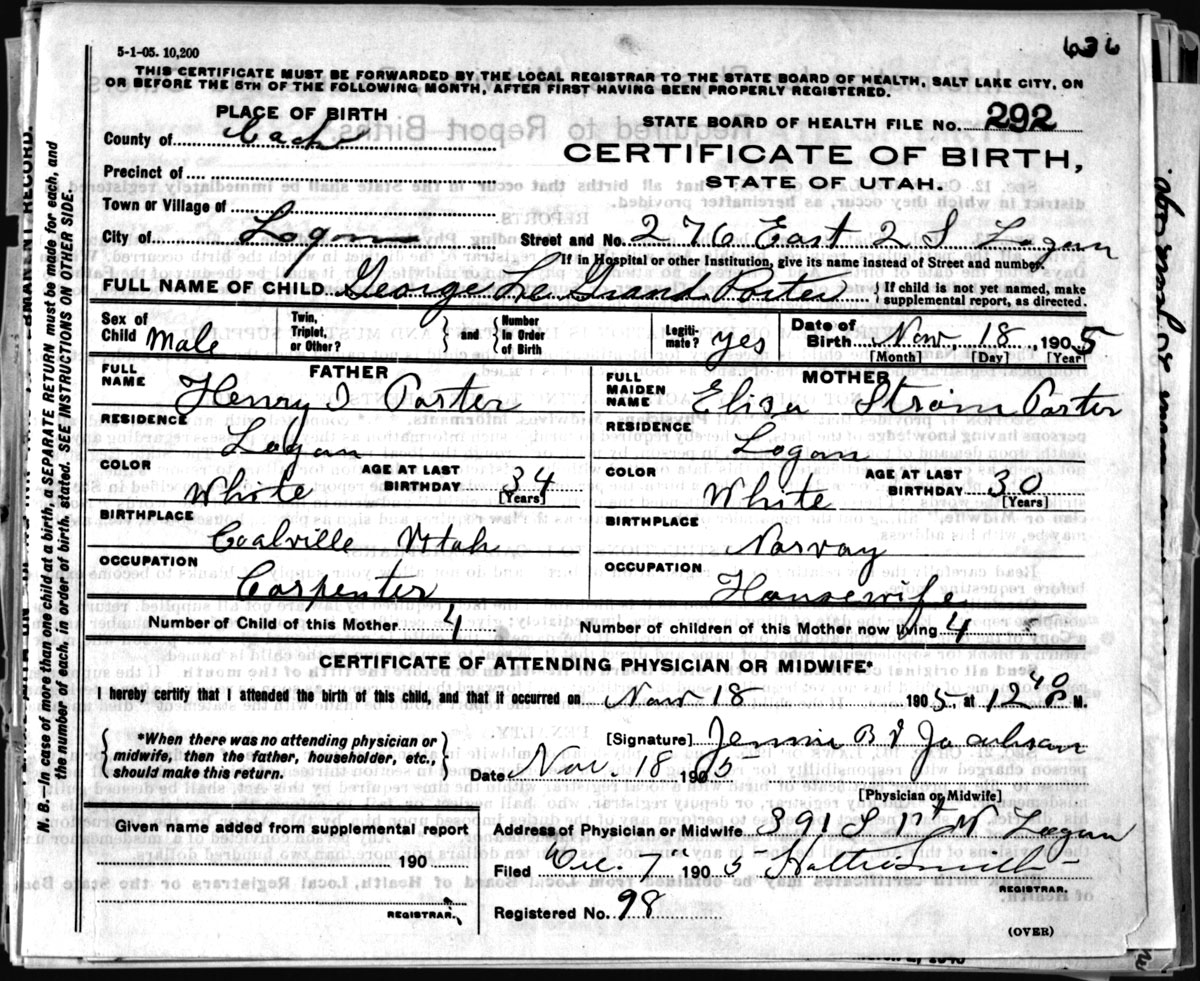 636
5-1-05. 10,200
THIS CERTIFICATE MUST BE FORWARDED BY THE LOCAL REGISTRAR TO THE STATE BOARD OF HEALTH, SALT LAKE CITY, ON
OR BEFORE THE 5TH OF THE FOLLOWING MONTH, AFTER FIRST HAVING BEEN PROPERLY REGISTERED.
PLACE OF BIRTH
STATE BOARD OF HEALTH FILE No. 292
County of Cache
CERTIFICATE OF BIRTH,
STATE OF UTAH.
Precinct of
Town or Village of
City of Logan
Street and No. 276 East 2 S Logan
If in Hospital or other Institution, give its name instead of Street and number.
FULL NAME OF CHILD George Le Grand Porter
If child is not yet named, make
supplemental report, as directed.
Sex of Child Male
Twin, Triplet, or Other?
and
Number in Order of Birth
Legitimate? yes
Date of Birth Nov 18, 1905
[Month] [Day] [Year]
FATHER
FULL NAME Henry J Porter
RESIDENCE Logan
COLOR White
AGE AT LAST BIRTHDAY 34
[Years]
BIRTHPLACE Coalville Utah
OCCUPATION Carpenter
MOTHER
FULL MAIDEN NAME Elisa Strom Porter
RESIDENCE Logan
COLOR White
AGE AT LAST BIRTHDAY 30
[Years]
BIRTHPLACE Norway
OCCUPATION Housewife
Number of Child of this Mother 4
Number of children of this Mother now living 4
CERTIFICATE OF ATTENDING PHYSICIAN OR MIDWIFE*
I hereby certify that I attended the birth of this child, and that it occurred on Nov 18 1905, at 12 40 P M.
*When there was no attending physician or
midwife, then the father, householder, etc.,
should make this return.
[Signature] Jennie B Jacobson
Date Nov. 18 1905
[Physician or Midwife]
Given name added from supplemental report
190
REGISTRAR.
Address of Physician or Midwife 391 S Logan
Filed Dec 7" 1905 Hattie Smith
REGISTRAR.
Registered No. 98
(OVER)
N. B.—In case of more than one child at a birth, a SEPARATE RETURN must be made for each, and
the number of each, in order of birth, stated. SEE INSTRUCTIONS ON OTHER SIDE.